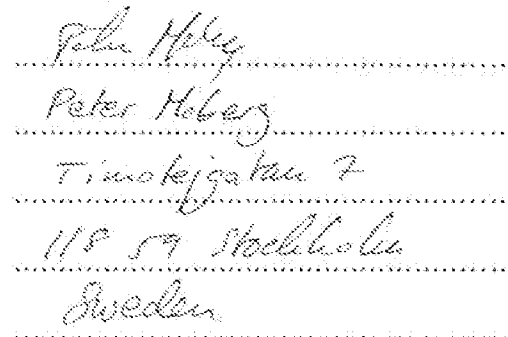 Peter Moberg
Timotejgatan 7
118 59 Stockholm
Sweden